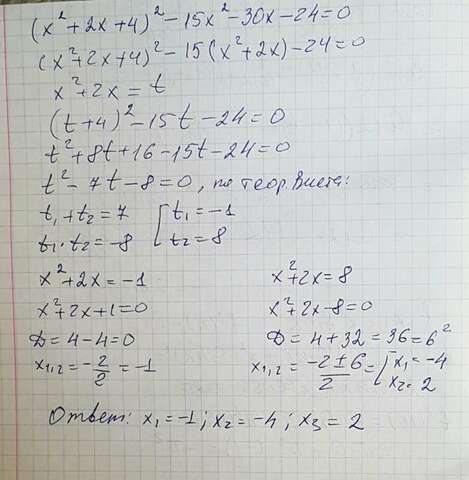 (x² + 2x + 4)² - 15x² - 30x - 24 = 0
(x² + 2x + 4)² - 15(x² + 2x) - 24 = 0
x² + 2x = t
(t + 4)² - 15t - 24 = 0
t² + 8t + 16 - 15t - 24 = 0
t² - 7t - 8 = 0, по теор. Виета:
t₁ + t₂ = 7 [ t₁ = -1
t₁ · t₂ = -8 t₂ = 8
x² + 2x = -1
x² + 2x + 1 = 0
D = 4 - 4 = 0
x₁,₂ = -2/2 = -1
x² + 2x = 8
x² + 2x - 8 = 0
D = 4 + 32 = 36 = 6²
x₁,₂ = (-2 ± 6)/2 = [ x₁ = -4
x₂ = 2
Ответ: x₁ = -1; x₂ = -4; x₃ = 2